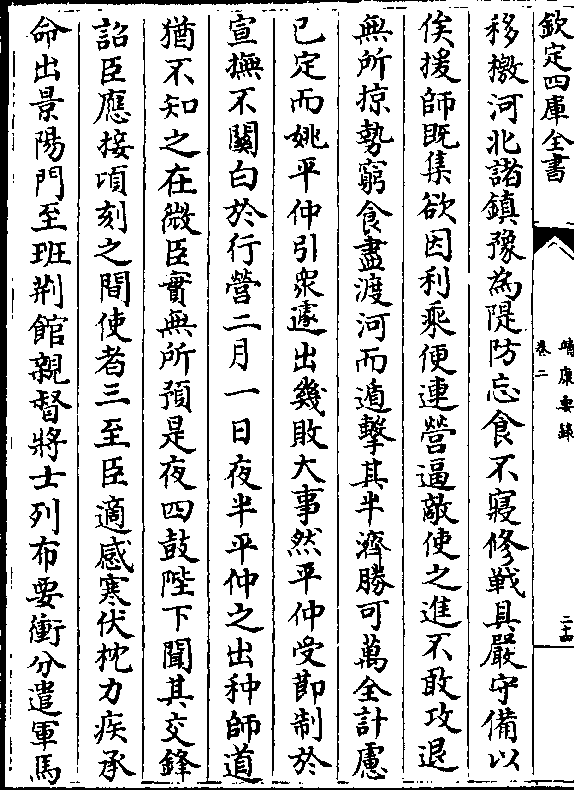 欽定四庫全書
靖康要錄
卷二
二十四
移檄河北諸鎮豫為隄防忘食不寢修戰具嚴守備以
俟援師既集欲因利乘便連營逼敵使之進不敢攻退
無所掠勢窮食盡渡河而遁擊其半濟勝可萬全計慮
已定而姚平仲引衆遽出幾敗大事然平仲受節制於
宣撫不關白於行營二月一日夜半平仲之出种師道
猶不知之在微臣實無所預是夜四鼓陛下聞其交鋒
詔臣應接頃刻之間使者三至臣適感寒伏枕力疾承
命出景陽門至班荆館親督將士列布要衝分遣軍馬